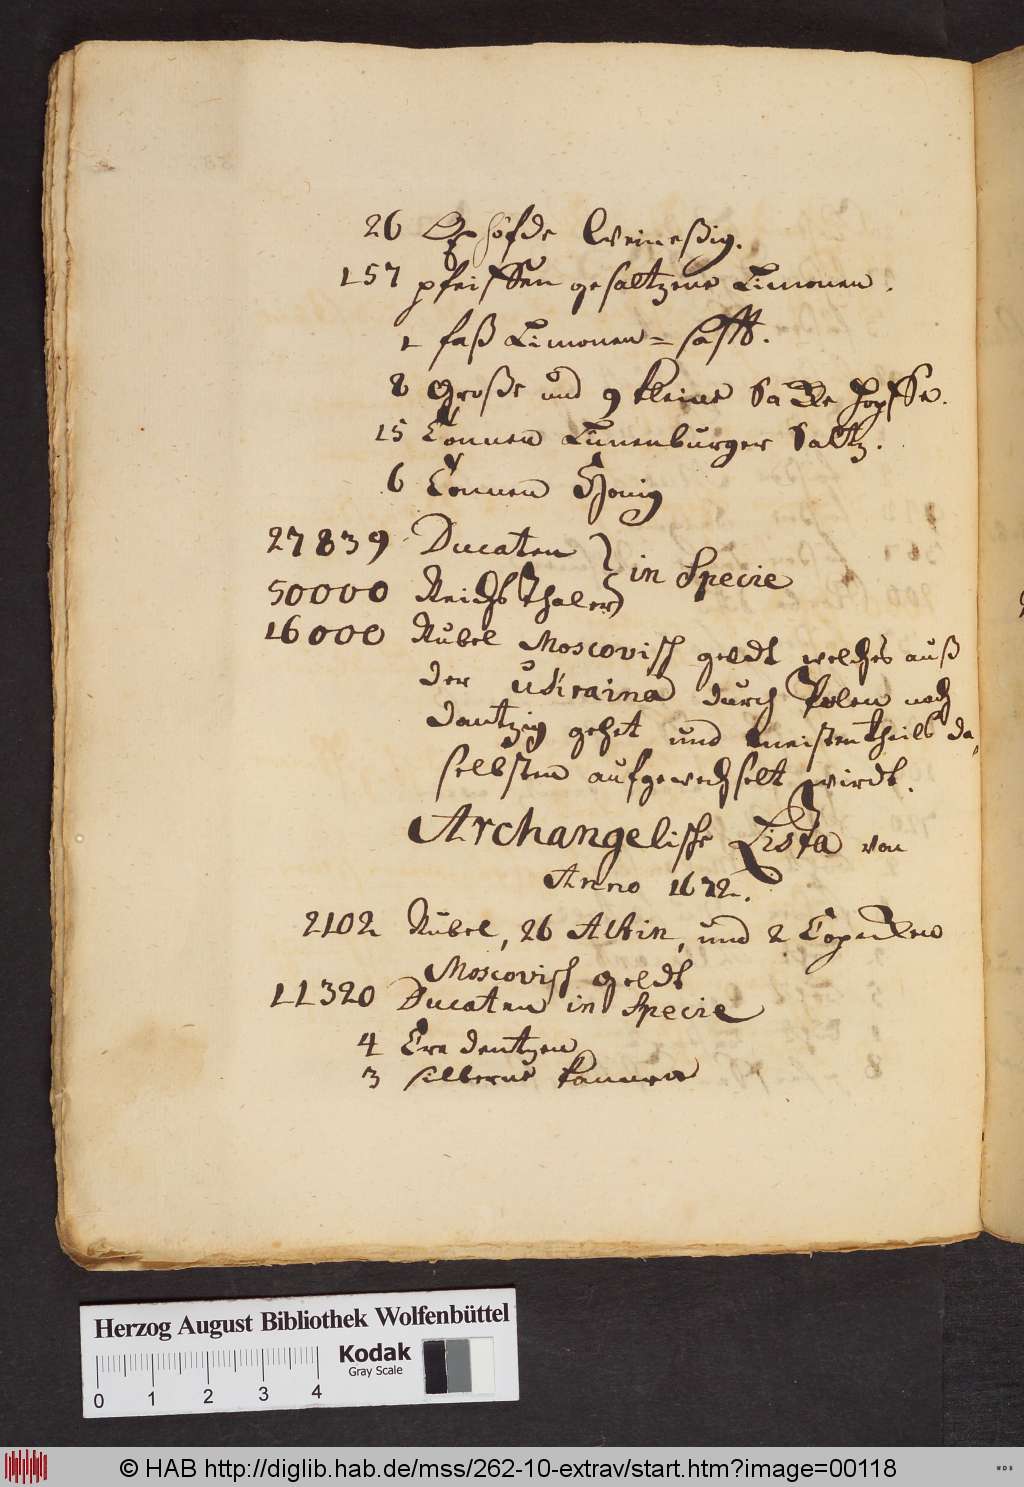 26 Oxhöfde Weineßig.
157 pfeiffen gesaltzene Limonen.
1 faß Limonen = safft.
8 Große und 9 kleine Säcke Hopffe.
15 Tonnen Lünenburger Saltz.
6 Tonnen Honig
27839 Ducaten } in Specie
50000 Reichsthaler
16000 Rubel Moscovisch geldt welches auß
der Ukraina durch Polen nach
Dantzig gehet und meistentheils da,
selbsten aufgewechselt wirdt.
Archangelische Lista von
Anno 1672.
2102 Rubel, 26 Altin, und 2 Copecken
Moscovisch geldt
11320 Ducaten in Specie
4 Credentzen
3 silberne kannen
Herzog August Bibliothek Wolfenbüttel
Kodak
Gray Scale
0 1 2 3 4
© HAB http://diglib.hab.de/mss/262-10-extrav/start.htm?image=00118